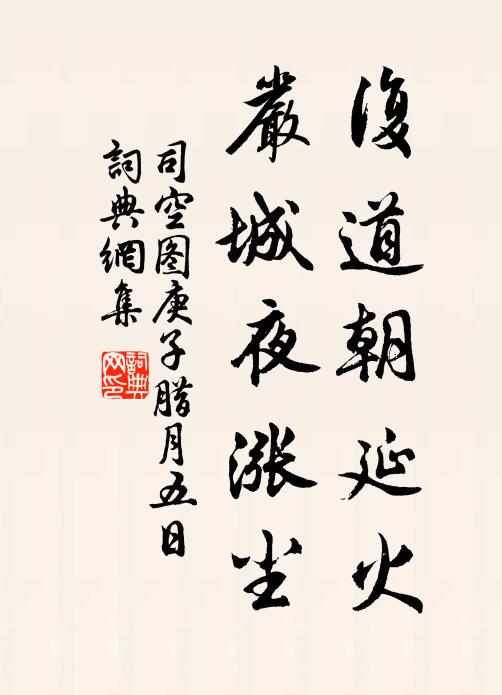 復道朝延火
嚴城夜漲尘
司空图庚子腊月五日
詞典網集
詞典网印